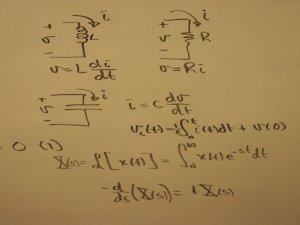 + i + i
v L v R
- -
v = L di/dt v = Ri
+ i
v i = C dv/dt
-
v_c(t) = 1/C ∫_0^t i(t)dt + v(0)
0 (1)
X(s) = L[x(t)] = ∫_0^∞ x(t) e^{-st} dt
-d/ds (X(s)) = t X(s)